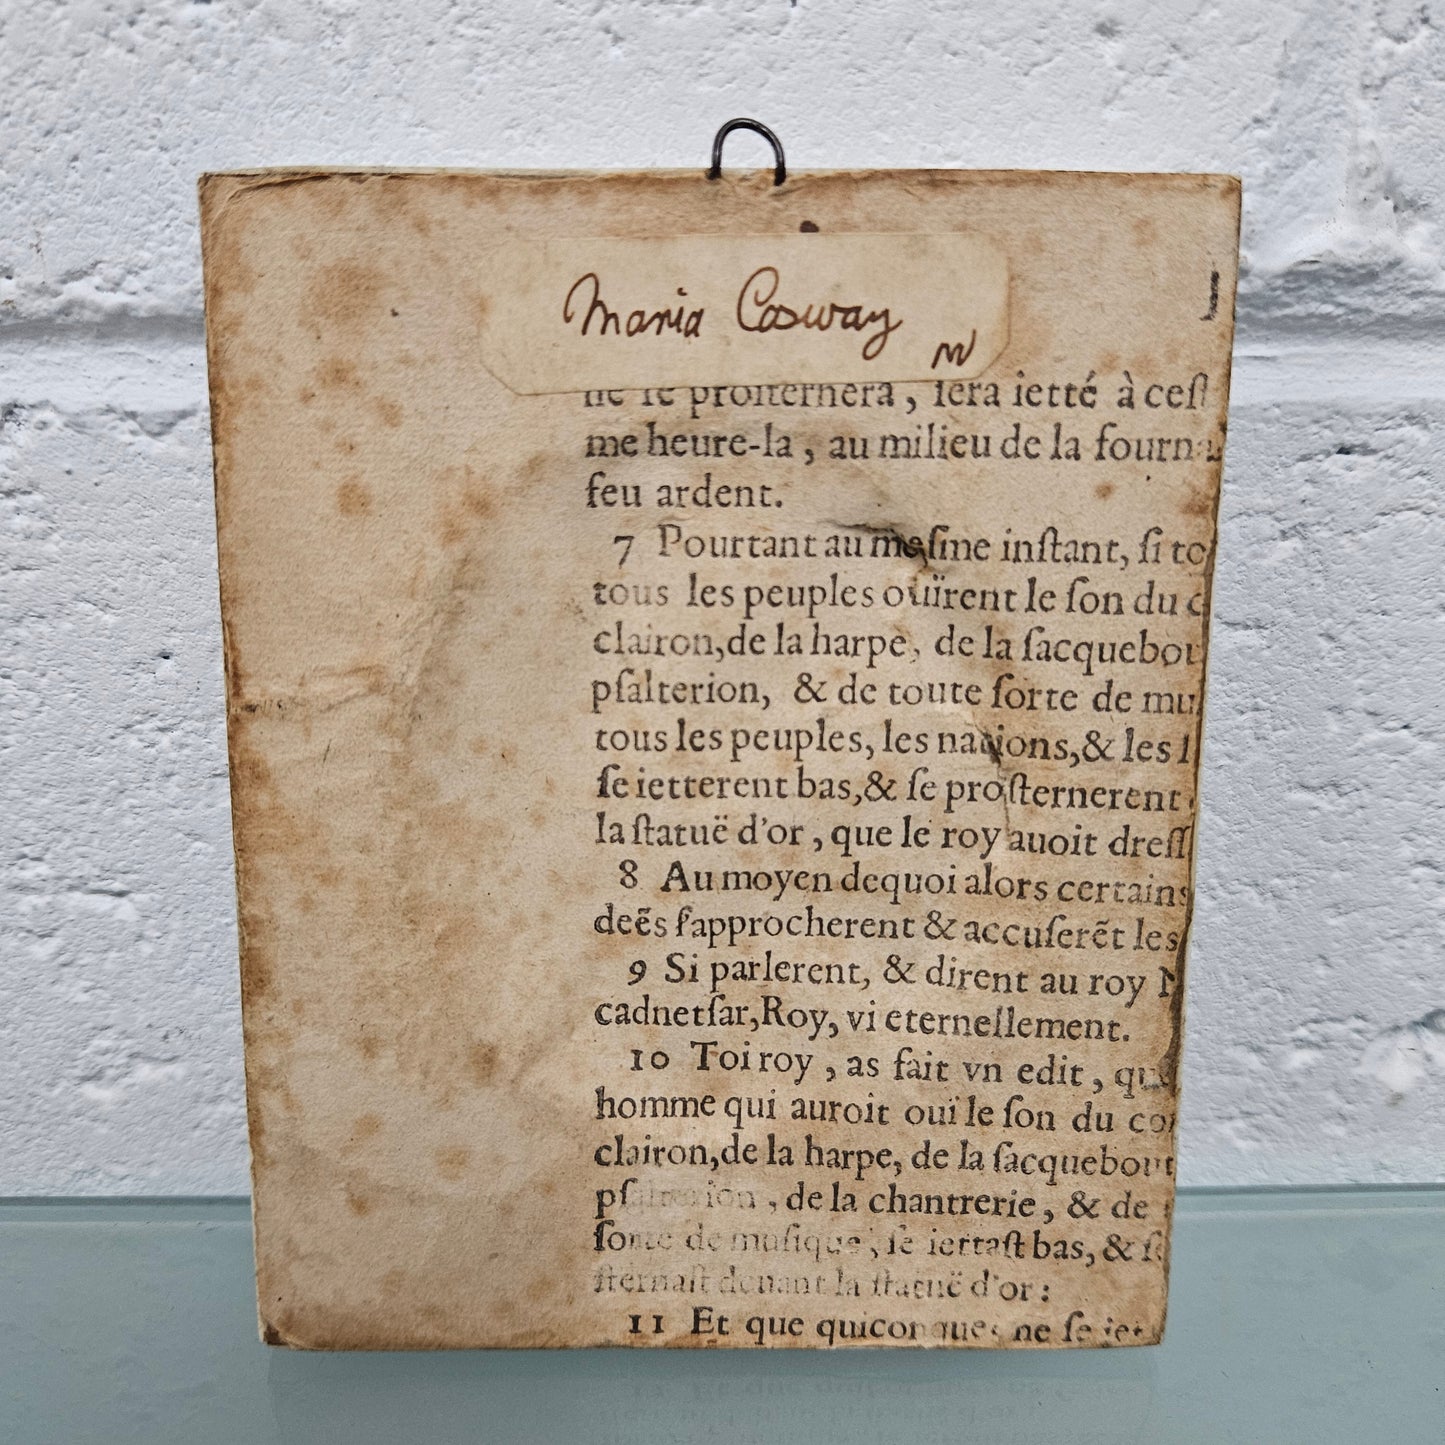 Maria Cosway
ne ſe proſternera, ſera ietté à ceſt
me heure-la, au milieu de la fourna
feu ardent.
7 Pourtant au meſme inſtant, ſi to
tous les peuples ouïrent le ſon du c
clairon,de la harpe, de la ſacquebou
pſalterion, & de toute ſorte de mu
tous les peuples, les nations,& les l
ſe ietterent bas,& ſe proſternerent
la ſtatuë d'or, que le roy auoit dreſſ
8 Au moyen dequoi alors certains
deẽs ſ'approcherent & accuſerẽt les
9 Si parlerent, & dirent au roy N
cadnetſar,Roy, vi eternellement.
10 Toi roy, as fait vn edit, que
homme qui auroit ouï le ſon du cor
clairon,de la harpe, de la ſacquebout
pſalterion, de la chantrerie, & de
ſorte de muſique, ſe iettaſt bas, & ſe
ſternaſt deuant la ſtatuë d'or:
11 Et que quiconque ne ſe iet